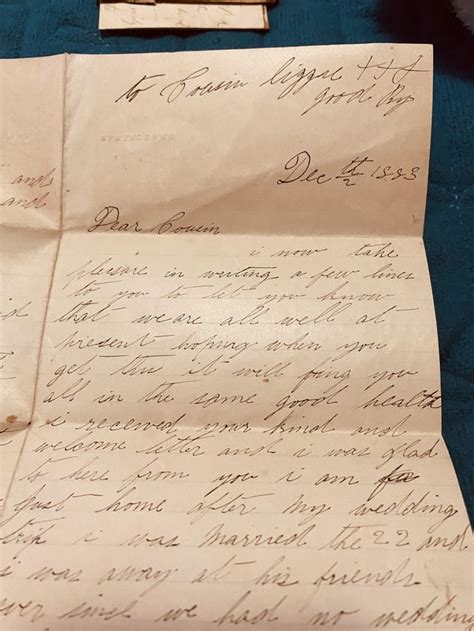 and
and
to Cousin lizzie
good By
Dec th/2 1883
Dear Cousin
i now take
pleasure in writing a few lines
to you to let you know
that we are all well at
present hoping when you
get this it will fing you
all in the same good health
i received your kind and
welcome letter and i was glad
to here from you i am
just home after my wedding
trip i was married the 22 and
i was away at his friends
ever since we had no wedding